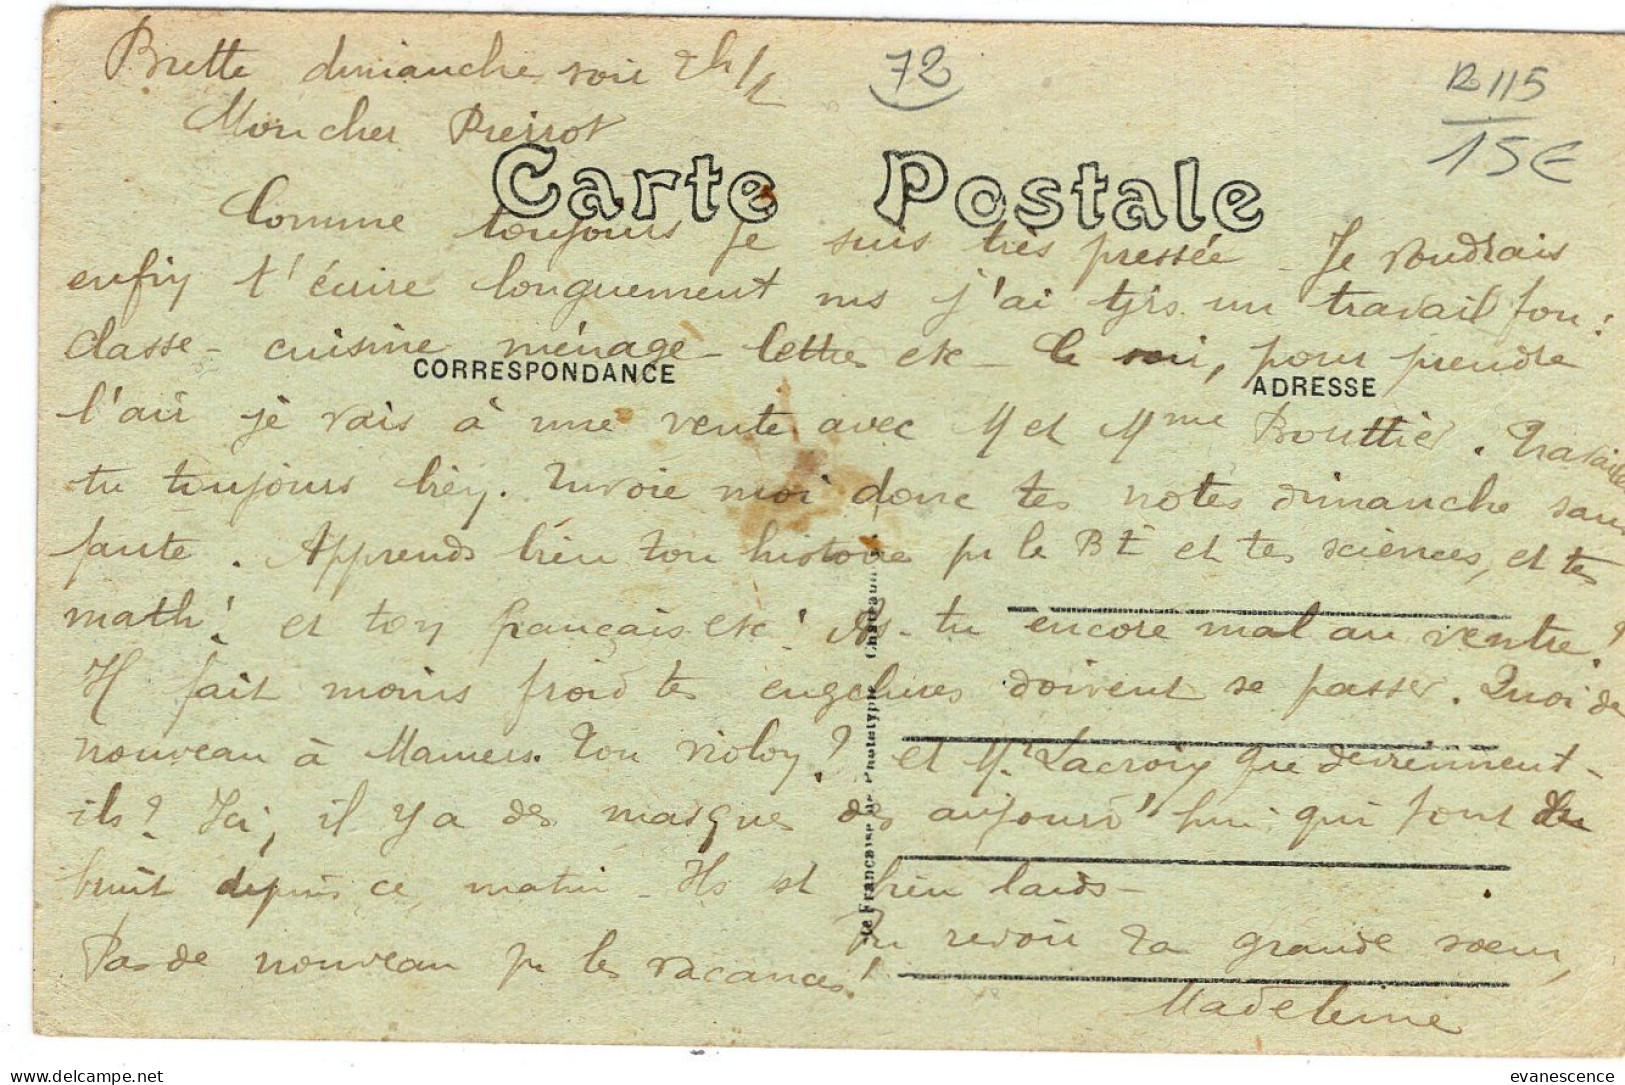 Brette dimanche soir 7h 1/2
72
R 115
15€
Mon cher Pierrot
Carte Postale
Comme toujours je suis très pressée - Je voudrais
enfin t'écrire longuement ms j'ai tjrs un travail fou :
classe - cuisine ménage - lettres etc - Ce soir, pour prendre
CORRESPONDANCE
ADRESSE
l'air je vais à une vente avec M et Mme Bouttier. Travaille
tu toujours bien. Envoie moi donc tes notes dimanche sans
faute. Apprends bien ton histoire pr le BE et tes sciences, et tes
math! et ton français etc! As-tu encore mal au ventre?
Il fait moins froid tes engelures doivent se passer. Quoi de
nouveau à Mamers. Ton violon? et Mr Lacroix que deviennent-
ils? Ici, il y a des masques dès aujourd'hui qui font du
bruit depuis ce matin - Ils st bien laids -
Pas de nouveau pr les vacances!
Au revoir Ta grande sœur,
Madeleine
Cie Française de Phototypie Châteaudun
evanescence